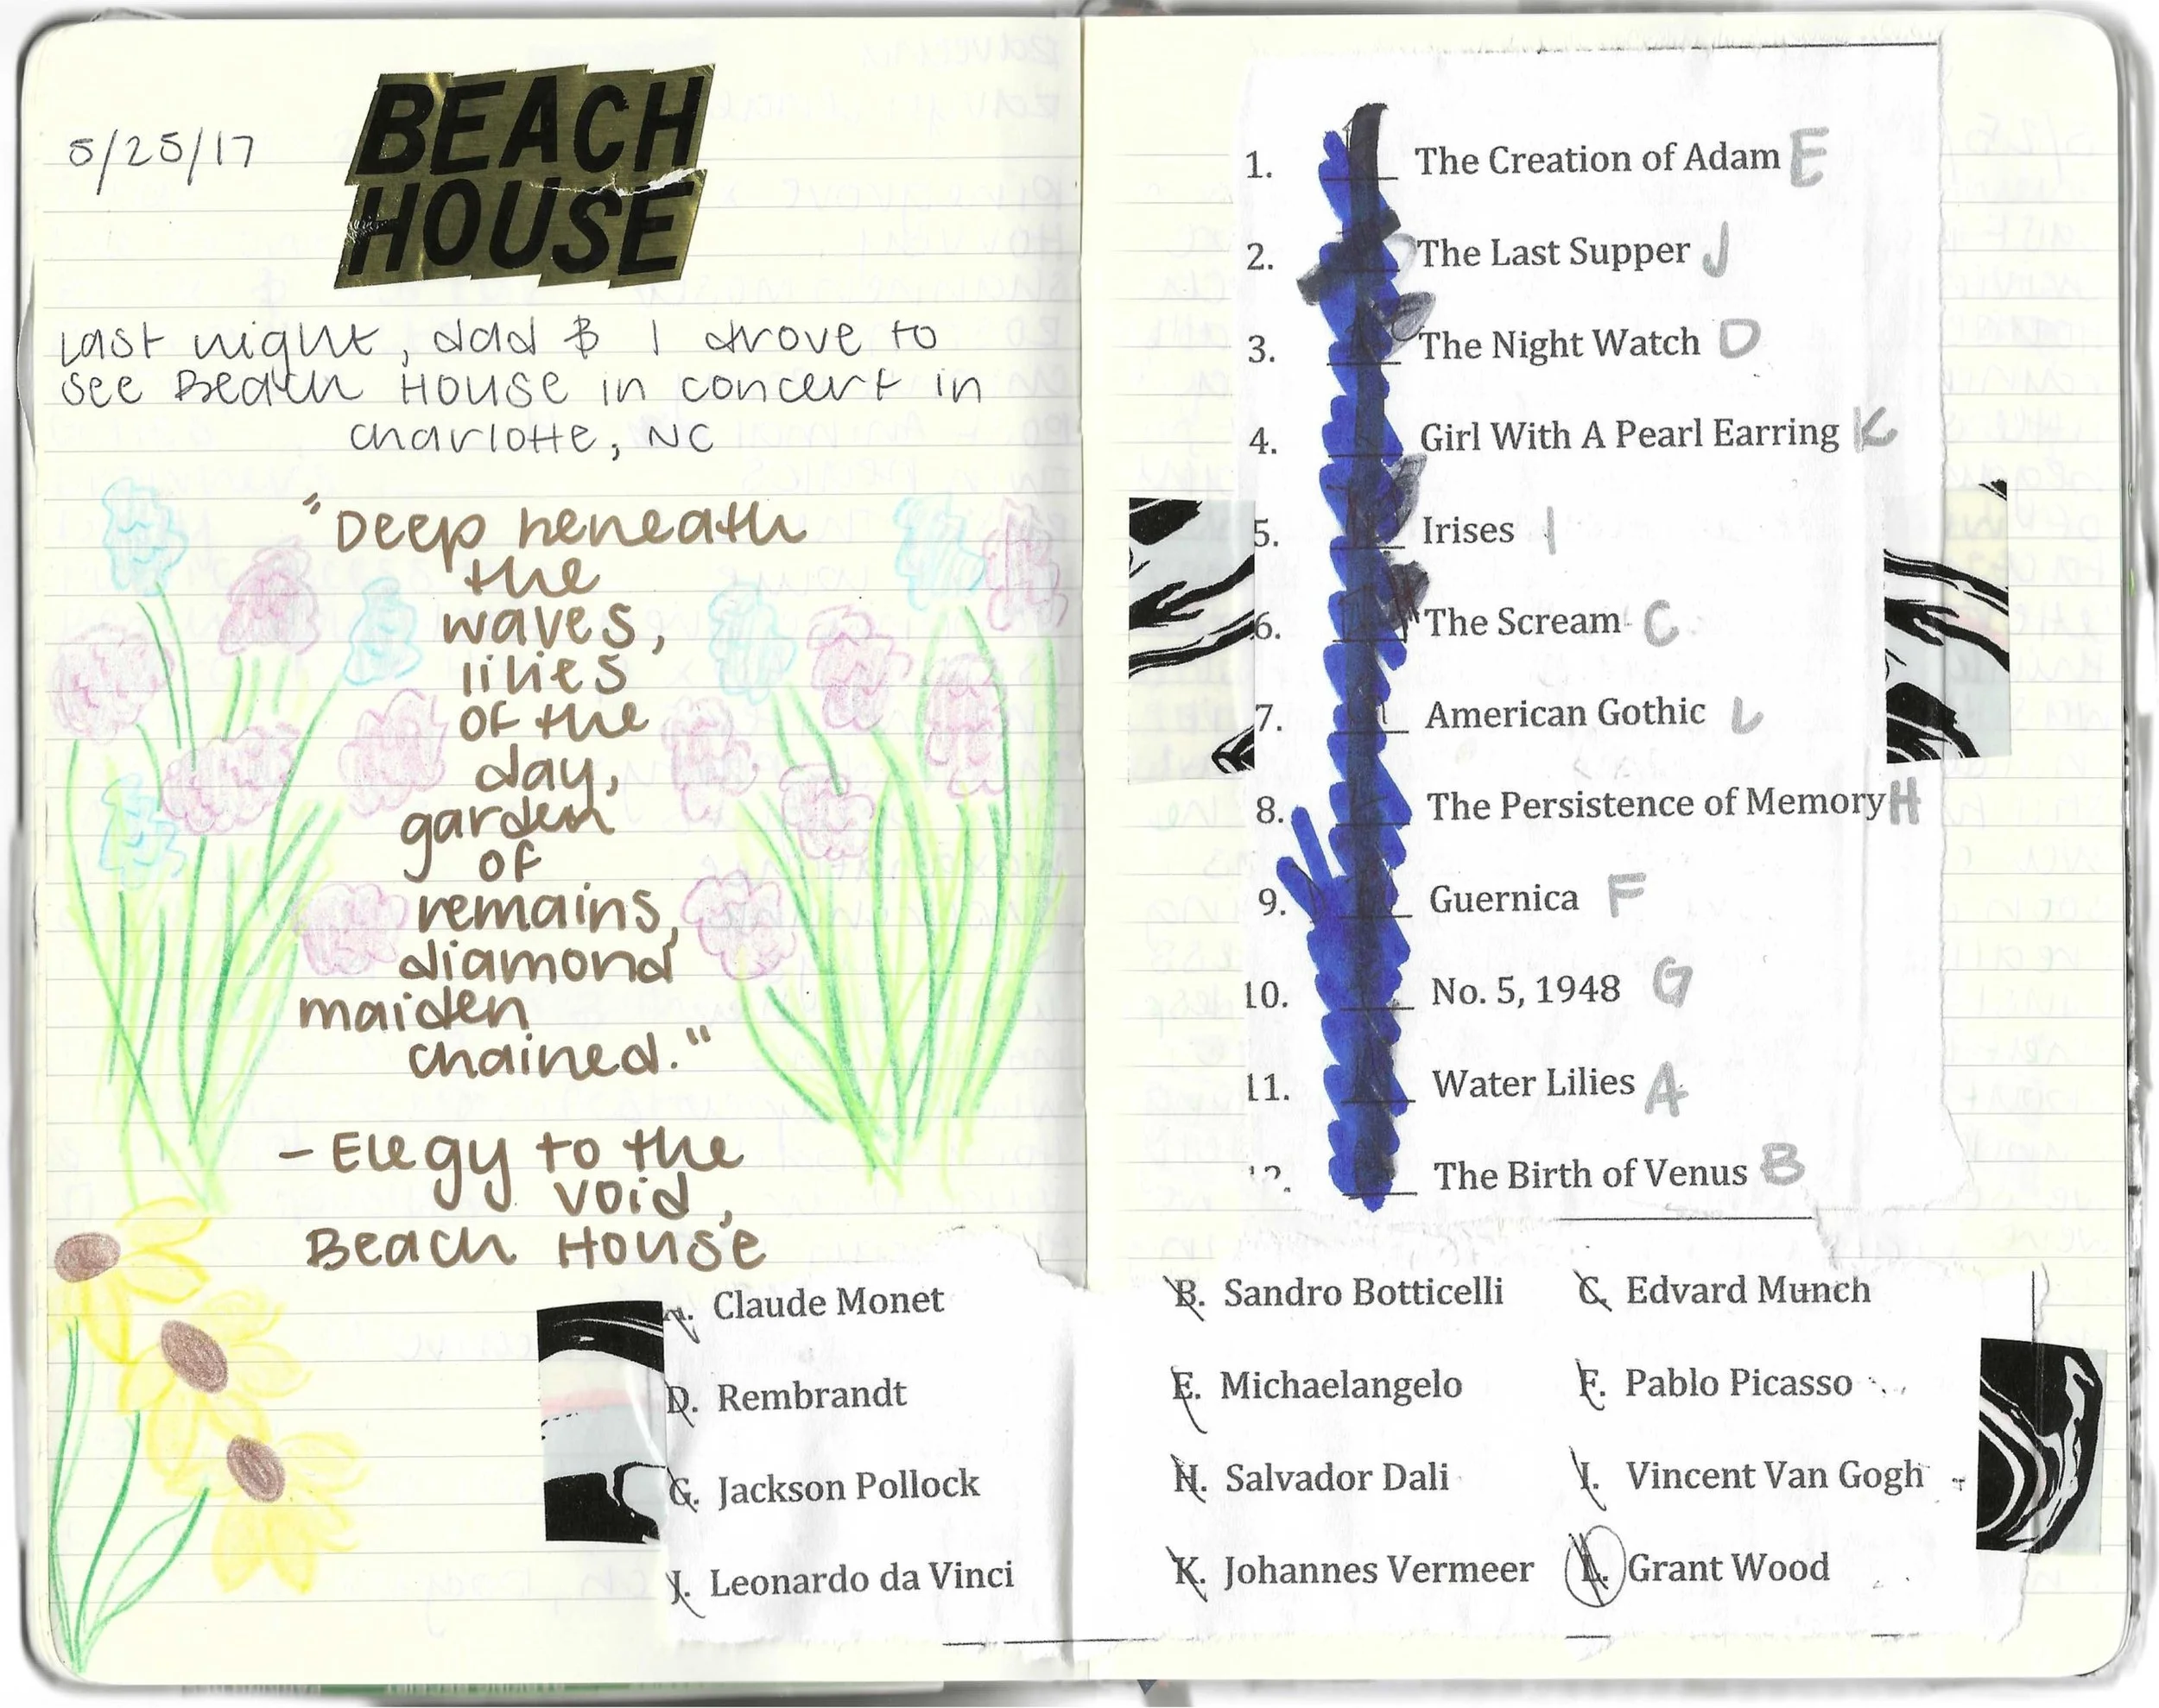 5/25/17
BEACH
HOUSE
Last night, dad & I drove to
see Beach House in concert in
Charlotte, NC
"Deep neneath
the
waves,
lilies
of the
day,
garden
of
remains,
diamond
maiden
chained."
- Elegy to the
void,
Beach House
1. The Creation of Adam E
2. The Last Supper J
3. The Night Watch D
4. Girl With A Pearl Earring K
5. Irises I
6. The Scream C
7. American Gothic L
8. The Persistence of Memory H
9. Guernica F
10. No. 5, 1948 G
11. Water Lilies A
12. The Birth of Venus B
A. Claude Monet B. Sandro Botticelli C. Edvard Munch
D. Rembrandt E. Michaelangelo F. Pablo Picasso
G. Jackson Pollock H. Salvador Dali I. Vincent Van Gogh
J. Leonardo da Vinci K. Johannes Vermeer L. Grant Wood